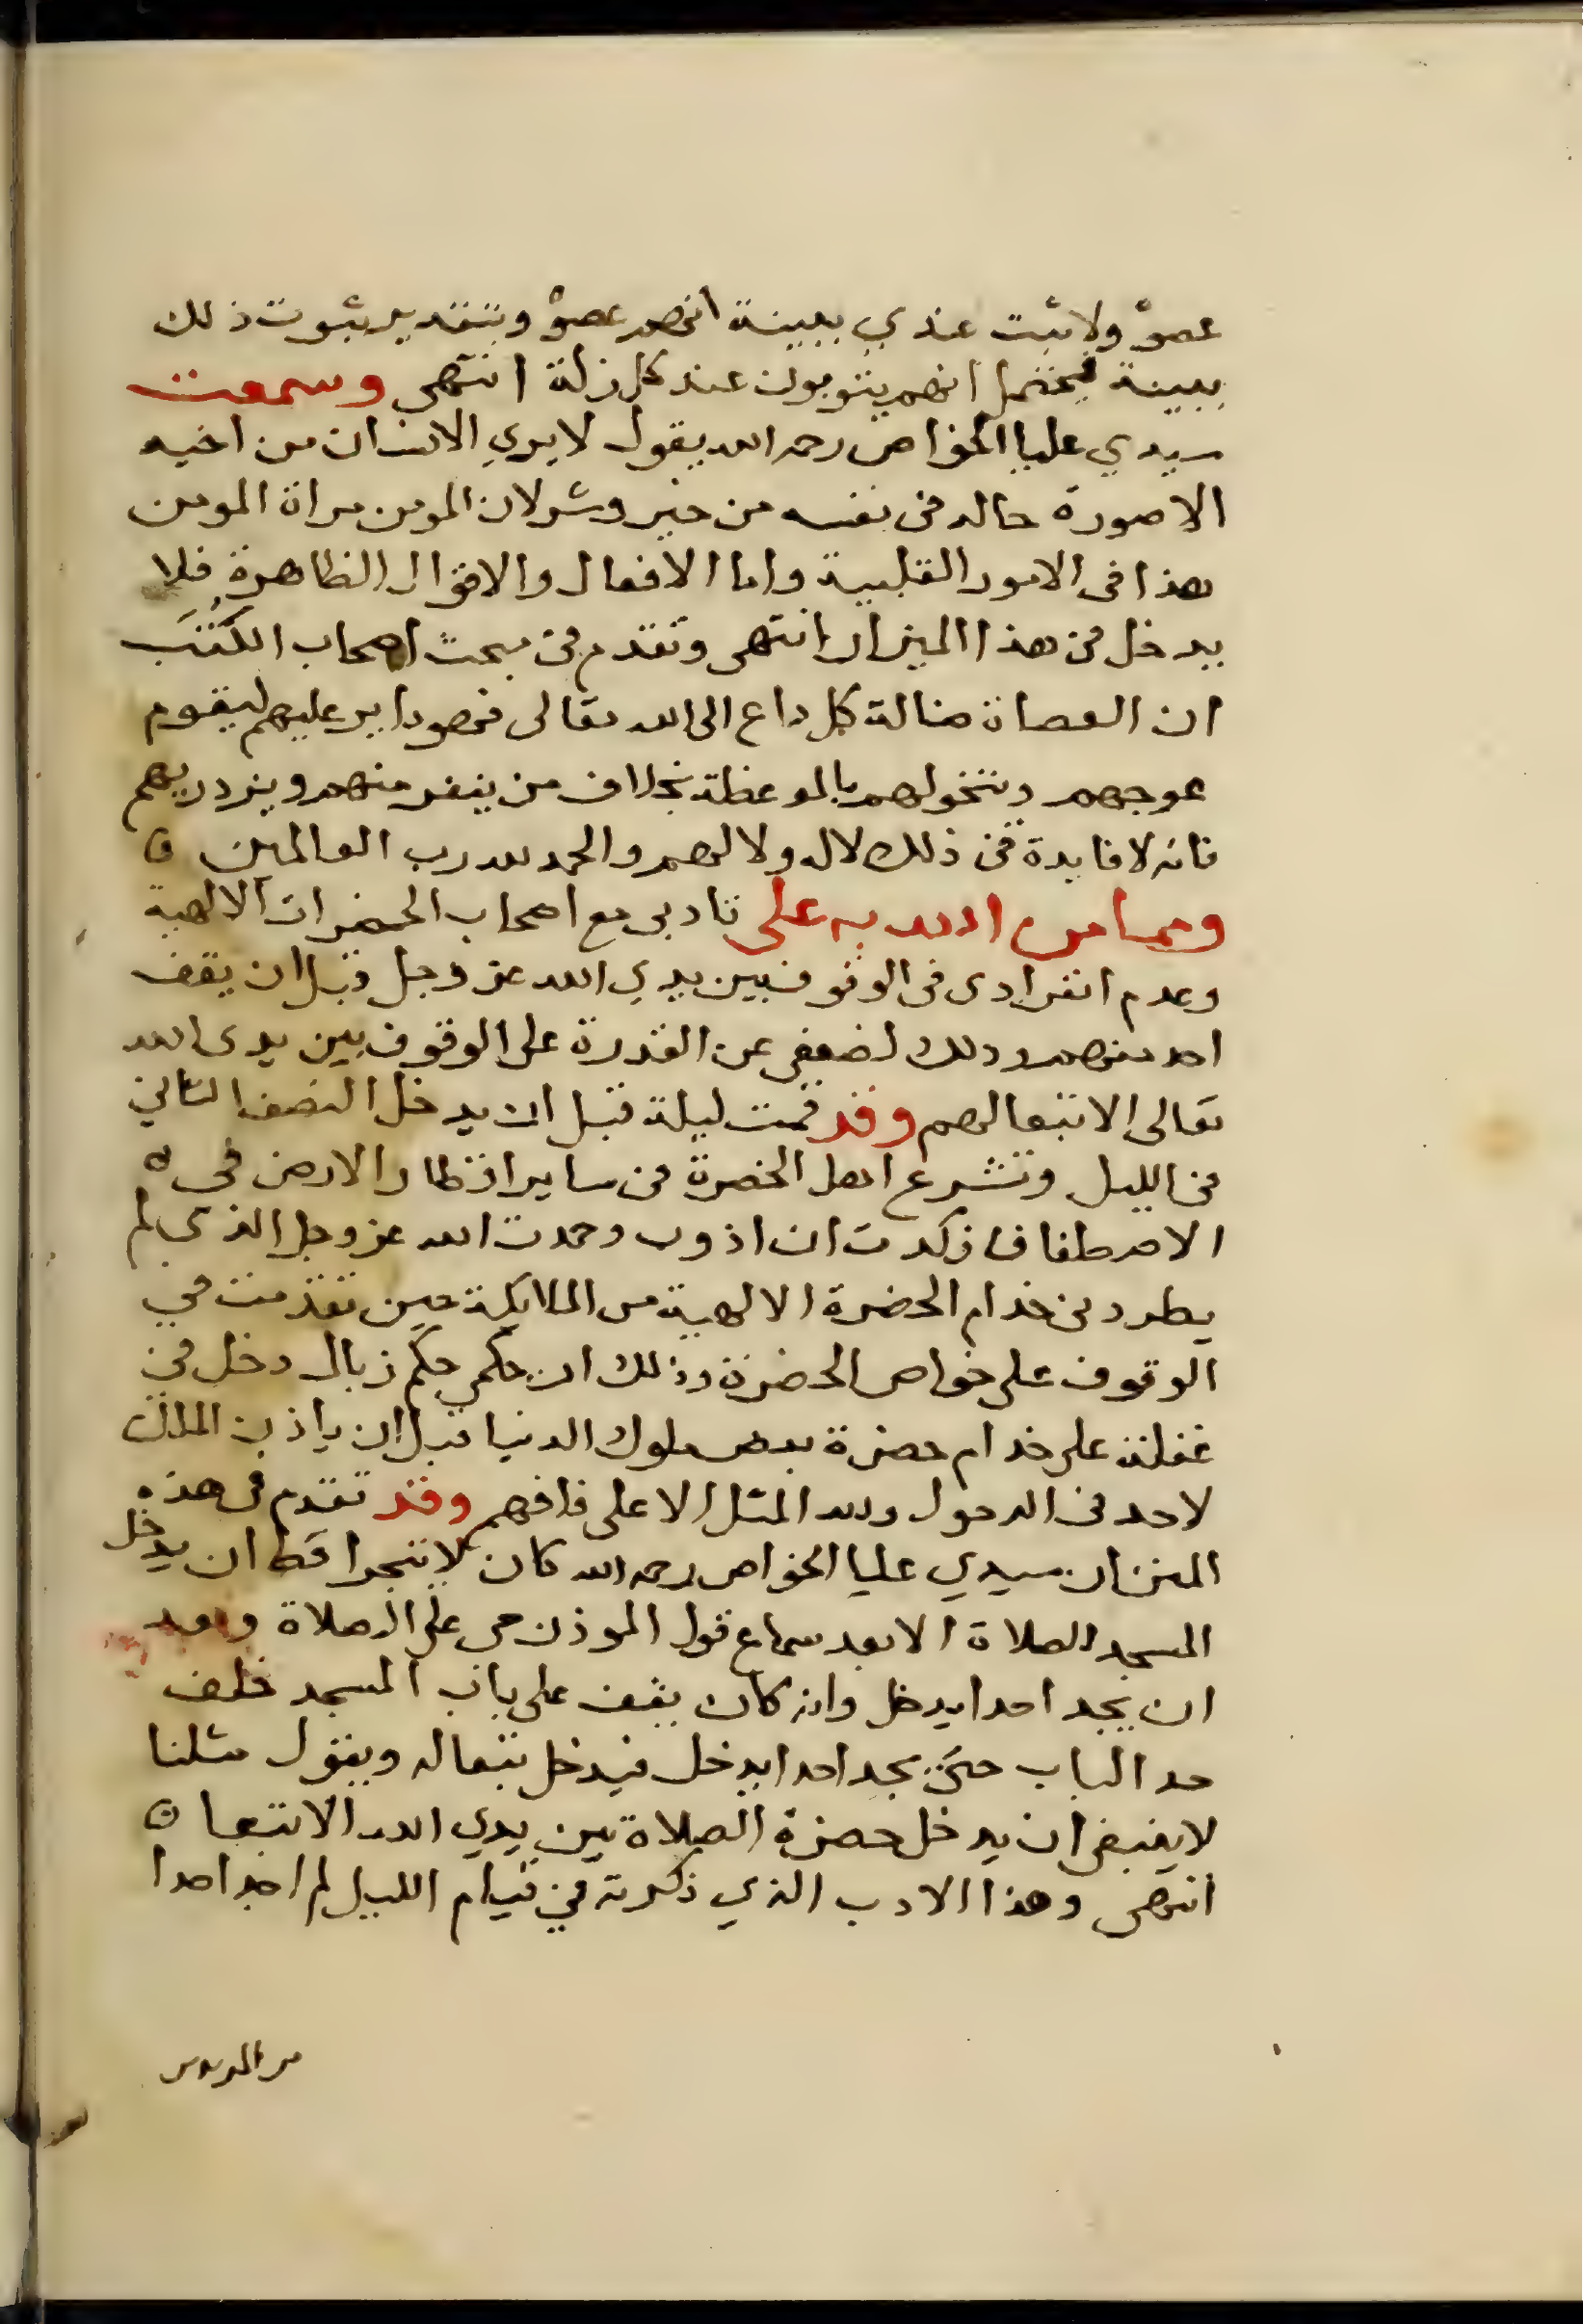 عصوْ ولا ثبت عندي ببينة انهم عصوْ وبتقدير ثبوت ذلك
ببينة فيحتمل انهم يتوبون عند كل زلة انتهى وسمعت
سيدي عليا الخواص رحمه الله يقول لا يري الانسان من اخيه
الا صورة حاله في نفسه من خير وشر لان المومن مراة المومن
هذا في الامور القلبية واما الافعال والاقوال الظاهرة فلا
يدخل في هذا الميزان انتهى وتقدم في مبحث اصحاب الكتب
ان العصاة ضالة كل داع الى الله تعالى فهو داير عليهم ليقوم
عوجهم ويتخولهم بالموعظة بخلاف من ينفر منهم ويزدريهم
فانه لا فايدة في ذلك لا له ولا لهم والحمد لله رب العالمين
ومما من الله به على تادبي مع اصحاب الحضرات الالهية
وعدم انفرادى فى الوقوف بين يدي الله عز وجل قبل ان يقف
احد منهم وذلك لضعفي عن القدرة على الوقوف بين يدى الله
تعالى الا تبعا لهم وقد قمت ليلة قبل ان يدخل النصف الثاني
من الليل وتشرع اهل الحضرة من ساير اقطار الارض في
الاصطفاف فكدت ان اذوب وحمدت الله عز وجل الذي لم
يطردني خدام الحضرة الالهية من الملايكة حين تقدمت في
الوقوف على خواص الحضرة وذلك ان حكمي حكم زبال دخل في
غفلة على خدام حضرة بعض ملوك الدنيا قبل ان ياذن الملك
لاحد في الدخول ولله المثل الاعلى فافهم وقد تقدم في هذه
المنن ان سيدي عليا الخواص رحمه الله كان لا يتجرا قط ان يدخل
المسجد للصلاة الا بعد سماع قول الموذن حي على الصلاة وبعد
ان يجد احدا يدخل وانه كان يقف على باب المسجد خلف
حد الباب حتى يجد احدا يدخل فيدخل تبعا له ويقول مثلنا
لا ينبغي ان يدخل حضرة الصلاة بين يدي الله الا تبعا
انتهى وهذا الادب الذي ذكرته في قيام الليل لم اجد احدا